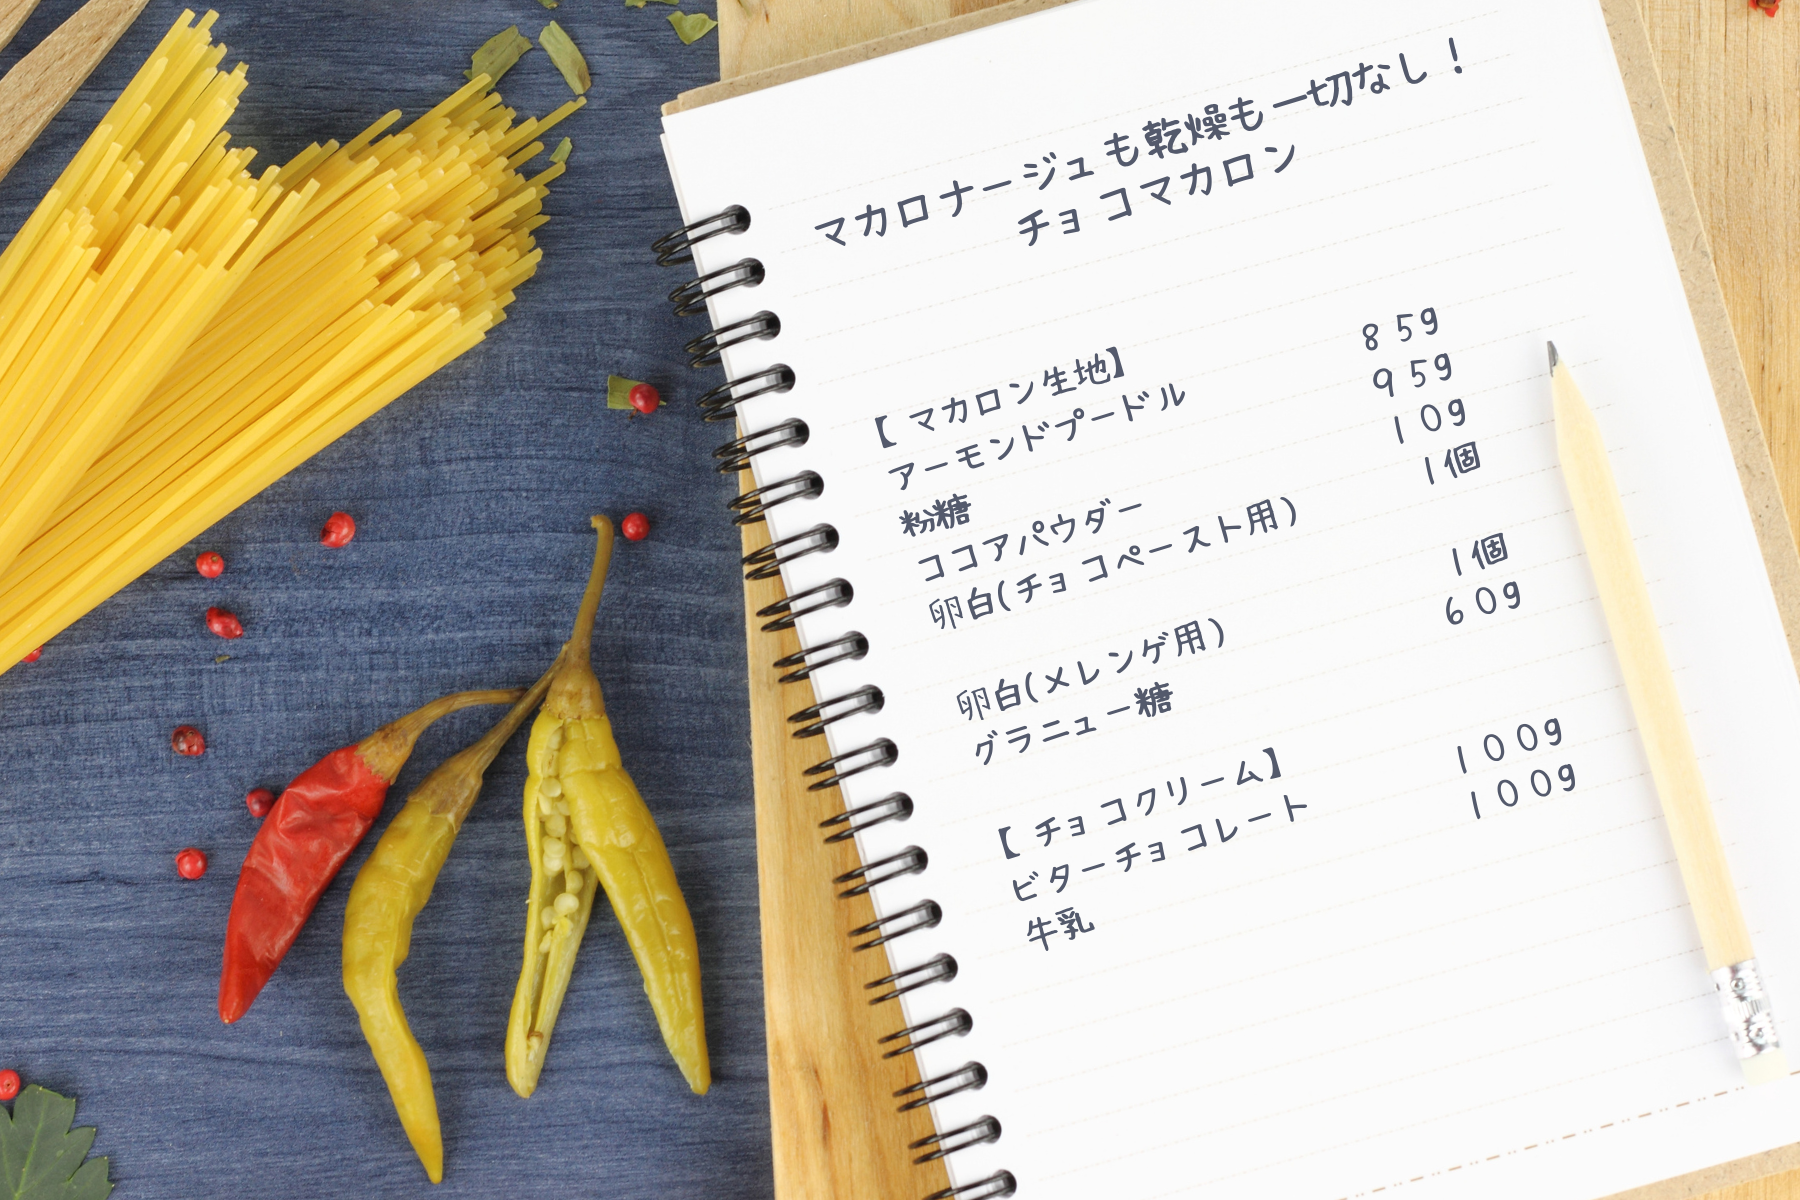 マカロナージュも乾燥も一切なし！
チョコマカロン
【マカロン生地】
アーモンドプードル 85g
粉糖 95g
ココアパウダー 10g
卵白(チョコペースト用) 1個
卵白(メレンゲ用) 1個
グラニュー糖 60g
【チョコクリーム】
ビターチョコレート 100g
牛乳 100g